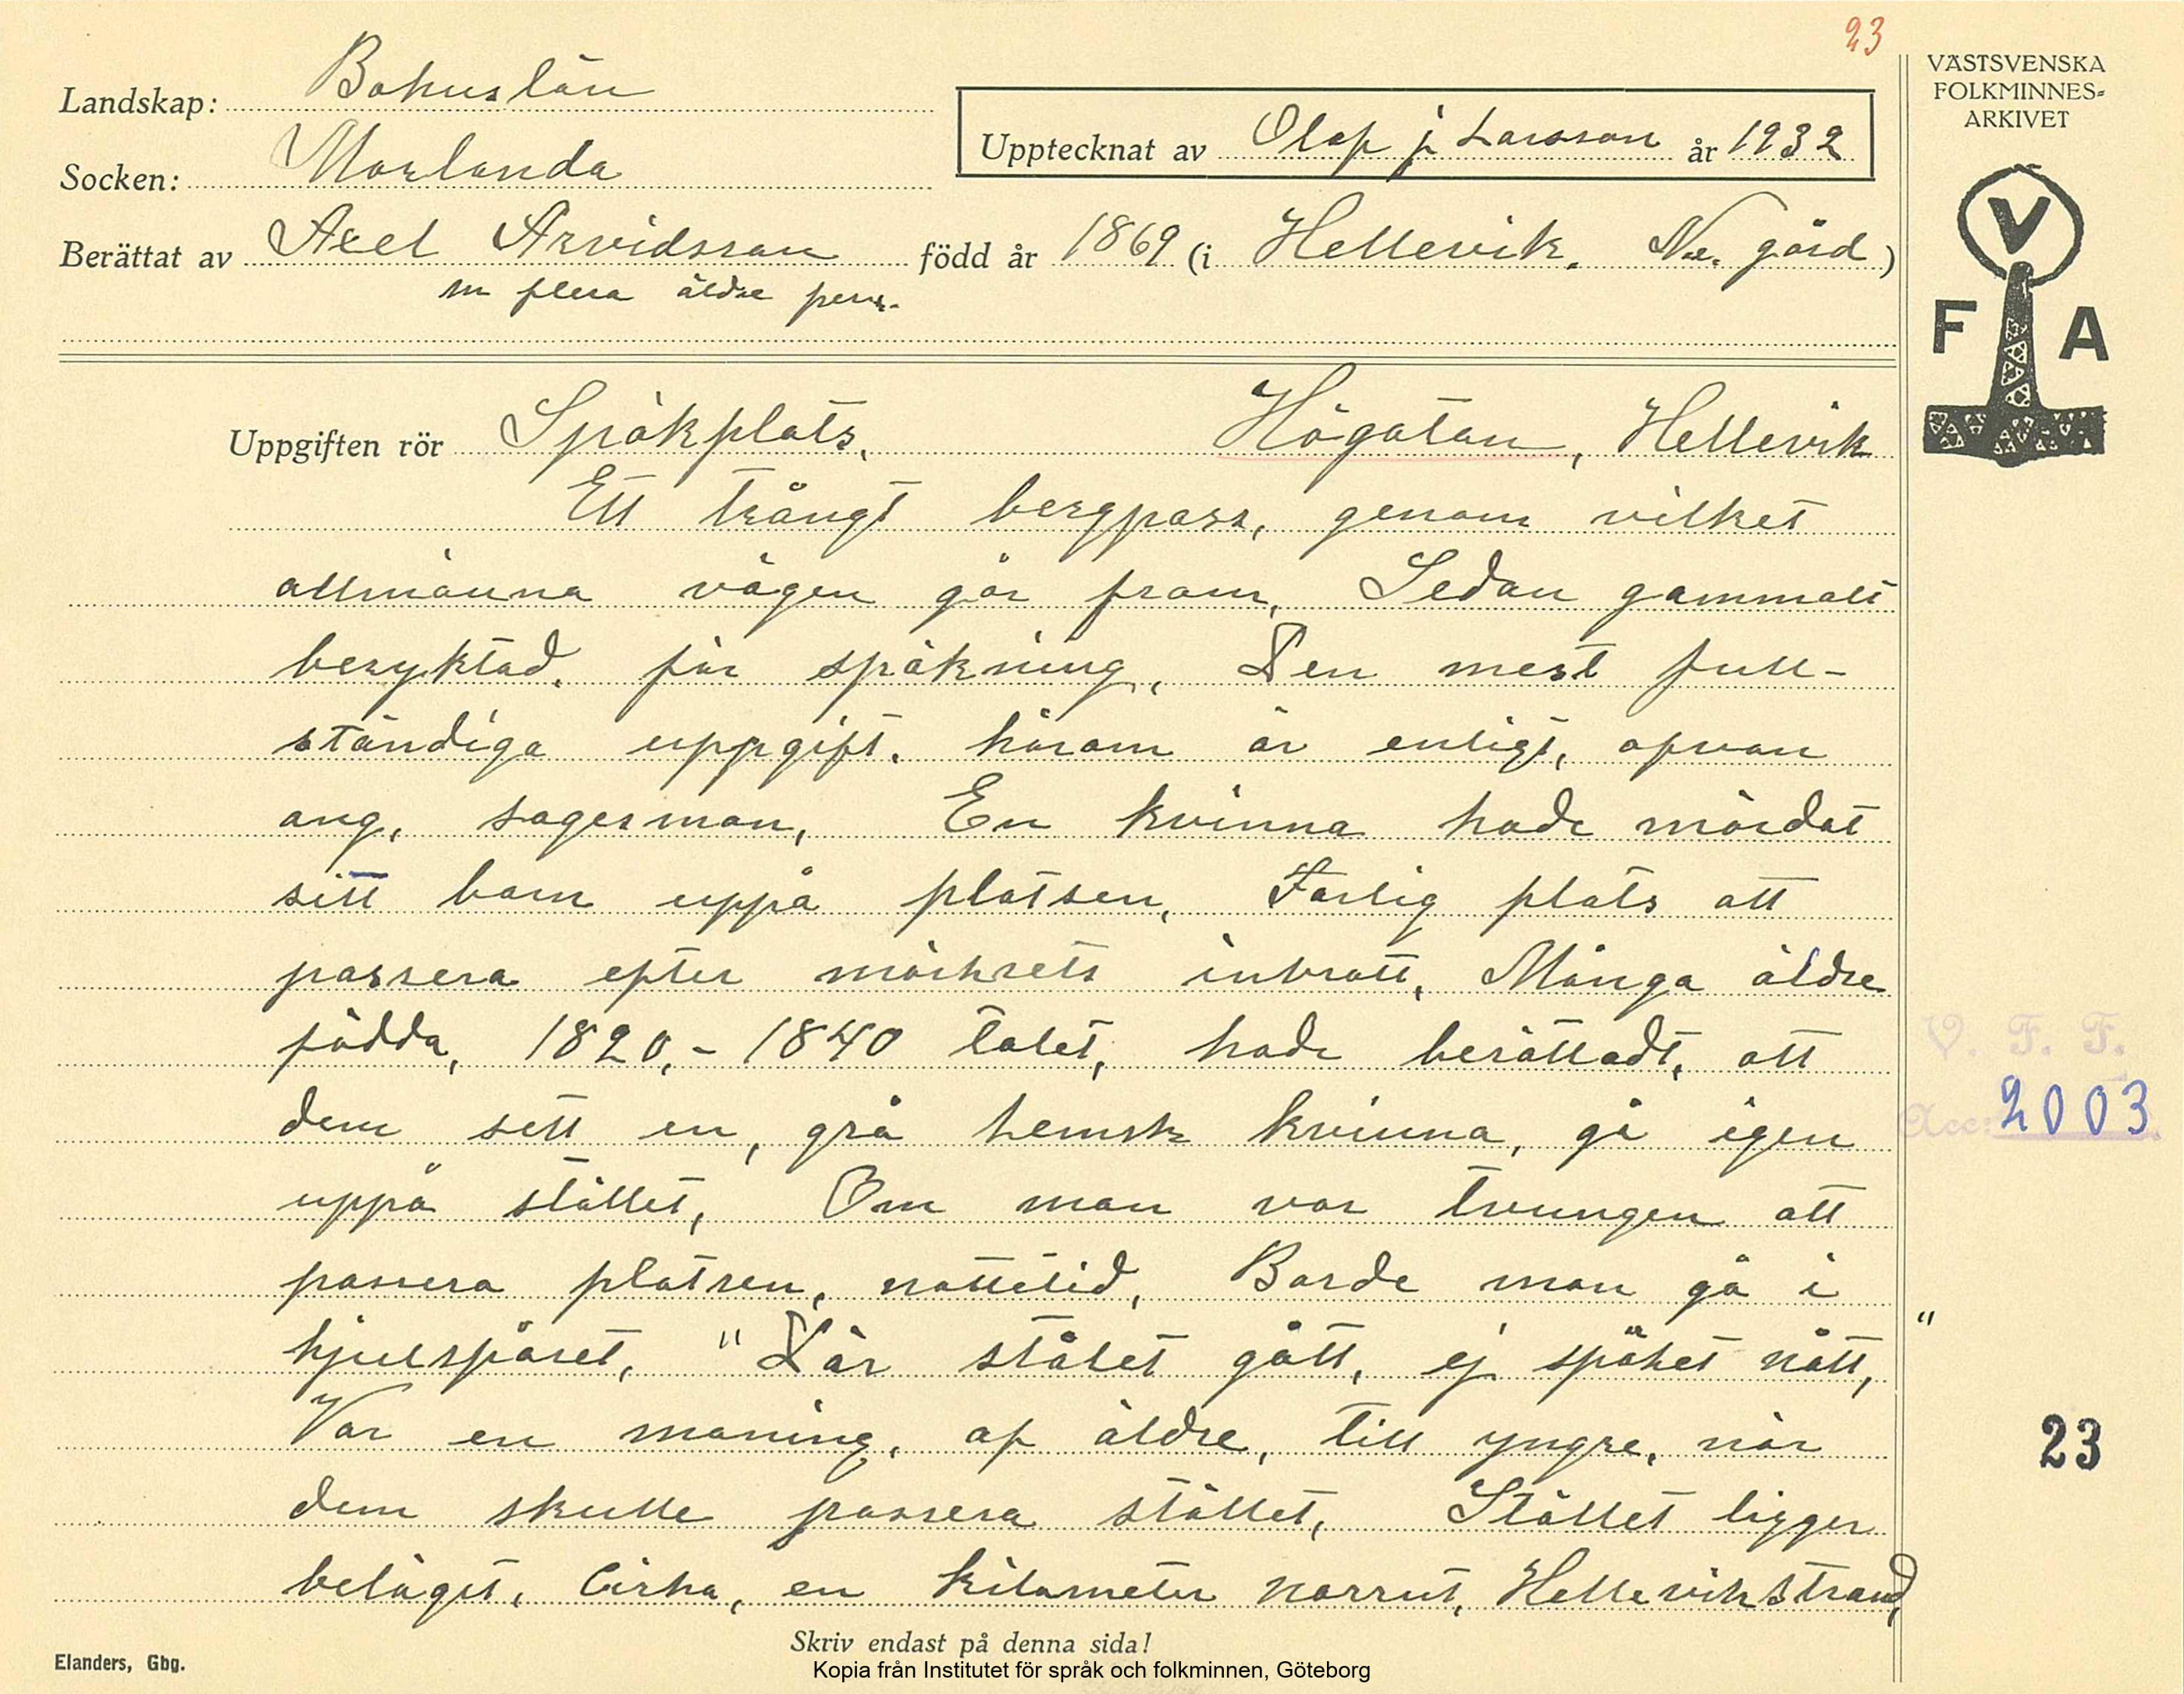 23
VÄSTSVENSKA
FOLKMINNES-
ARKIVET
Landskap: Bohuslän
Upptecknat av Olof j Larsson år 1932
Socken: Morlanda
Berättat av Axel Arvidsson född år 1869 (i Hellevik. N.e. gård)
m flera äldre pers.
V
F A
Uppgiften rör Spökplats, Högatan, Hellevik
Ett trångt bergpass, genom vilket
allmänna vägen går fram, Sedan gammalt
beryktad. för spökning, Den mest full-
ständiga uppgift. härom är enligt, ofvan
ang, sagesman, En kvinna hade mördat
sitt barn uppå platsen, Farlig plats att
passera efter mörkrets inbrott, Många äldre
födda, 1820,- 1840 talet, hade berättadt, att
dem sett en, grå hemsk kvinna, gå igen
uppå stället, Om man var tvungen att
passera platsen, nattetid, Borde man gå i
hjulspåret, "Där stålet gått, ej spöket nått, "
Var en maning, af äldre, till yngre, när
dem skulle passera stället, Stället ligger
beläget, Cirka, en kilometer norrut, Hellevikstrand,
V. F. F.
Acc: 2003
23
Skriv endast på denna sida!
Elanders, Gbg.
Kopia från Institutet för språk och folkminnen, Göteborg